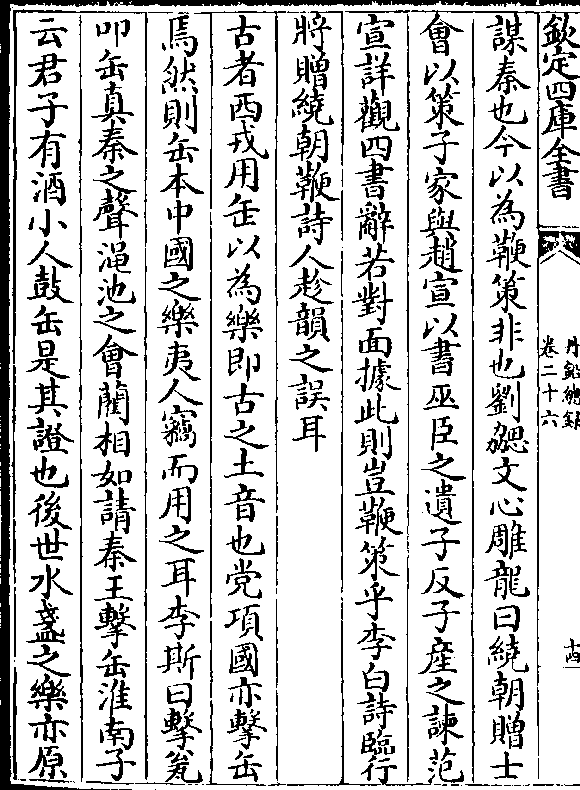 欽定四庫全書
丹鉛總錄
卷二十六
十四
謀秦也今以為鞭策非也劉勰文心雕龍曰繞朝贈士
會以策子家與趙宣以書巫臣之遺子反子産之諫范
宣詳觀四書辭若對面據此則豈鞭策乎李白詩臨行
將贈繞朝鞭詩人趁韻之誤耳
古者西戎用缶以為樂即古之土音也党項國亦擊缶
焉然則缶本中國之樂夷人竊而用之耳李斯曰擊瓮
叩缶真秦之聲澠池之會藺相如請秦王擊缶淮南子
云君子有酒小人鼓缶是其證也後世水盞之樂亦原